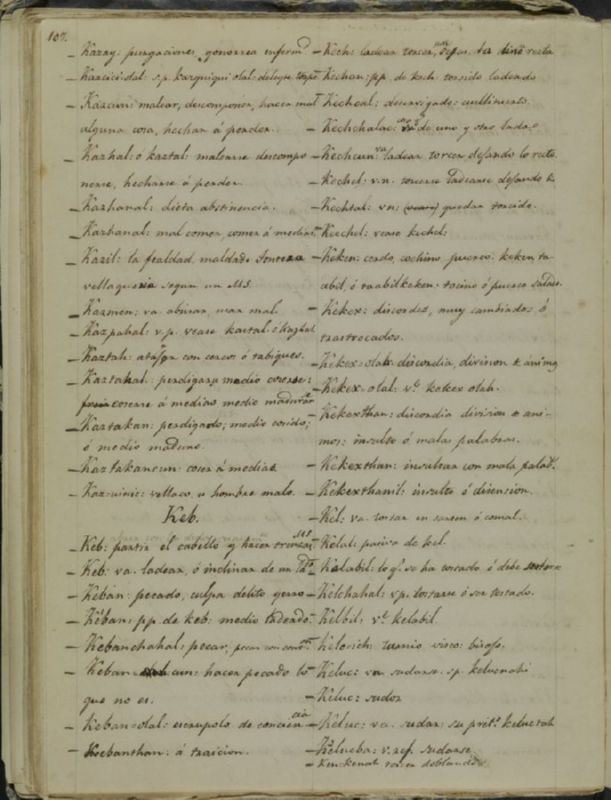 107.
_ Kazay: purgaciones, gonorrea enferm.d
_ Kazcicidal: s.p. kazquiqui olal: deleyte torpe
_ Kazcun: malear, descomponer, hacer mal
alguna cosa, hechar á perder.
_ Kazhal: ó kaztal: malearse descompo
nerse, hecharse á perder.
_ Kazhanal: dieta abstinencia.
_ Kazhanal: mal comer, comer á medias.
_ Kazil: la fealdad, maldad
vellaqueria segun un MS.
_ Kazmen: va. abusar, usar mal.
_ Kazpahal: v.p. vease kaztal ó kazhal
_ Kaztah: atajar con cercos ó tabiques.
_ Kaztahal: perdigarse medio cocerse:
cocerse á medias medio madurar
_ Kaztakan: perdigado; medio cocido;
ó medio maduro.
_ Kaztakancun: cocer á medias
_ Kaz-uinic: vellaco, u hombre malo.
Keb.
_ Keb: partir el cabello y hacer trenzas. MS.
_ Keb: va. ladear, ó inclinar de un lado
_ Keban: pecado, culpa delito yerro
_ Keban: pp. de keb: medio ladeado.
_ Kebanchahal: pecar, pecar con
_ Keban cun: hacer pecado lo
que no es.
_ Keban-olal: escrupolo de conciencia
_ Kebanthan: á traicion.
_ Kech: ladear torcer, recta
_ Kechan: pp. de kech torcido ladeado
_ Kechcal: descervigado: cuellituerto.
_ Kechchalac: de uno y otro lado.
_ Kechcun: va ladear torcer desando lo recto
_ Kechel: v.n. torcerse ladearse desando
_ Kechtal: vn: quedar torcido.
_ Keechel: vease kechel:
_ Keken: cerdo, cochino puerco: keken ta-
abil, ó taabilkeken: tocino ó puerco salado.
_ Kekex: discordes, muy cambiados ó
trastrocados.
_ Kekex-olah: discordia, division de animos
_ Kekex-olal: v.e kekex olah.
_ Kekexthan: discordia division de ani-
mos: insulto ó malas palabras.
_ Kekexthan: insultar con mala palab.
_ Kekexthanil: insulto ó disension.
_ Kel: va. tostar en sarten ó comal.
_ Kelal: pasivo de kel.
_ Kelabil: lo q.e se ha tostado ó debe
_ Kelchahal: v.p. tostarse ó ser tostado.
_ Kelbil: v.e kelabil.
_ Keloich: visco: birojo.
_ Keluc: vn. sudarse. sp. kelucnahi
_ Keluc: sudor
_ Keluc: va. sudar: su prit.o keluctah
_ Kelucba: v. ref. sudarse
_ Ken-kenac